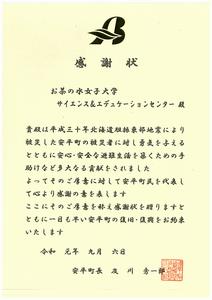 感謝状
お茶の水女子大学
サイエンス&エデュケーションセンター 殿
貴殿は平成三十年北海道胆振東部地震により
被災した安平町の被災者に対し勇気を与える
とともに安心・安全な避難生活を築くための手
助けなど多大なる貢献をされました
よってそのご厚意に対して安平町民を代表し
て心より感謝の意を表します
ここにそのご厚意を称え感謝状を贈りますと
ともに一日も早い安平町の復旧・復興をお約束
いたします
令和 元年 九月 六日
安平町長 及川 秀一郎